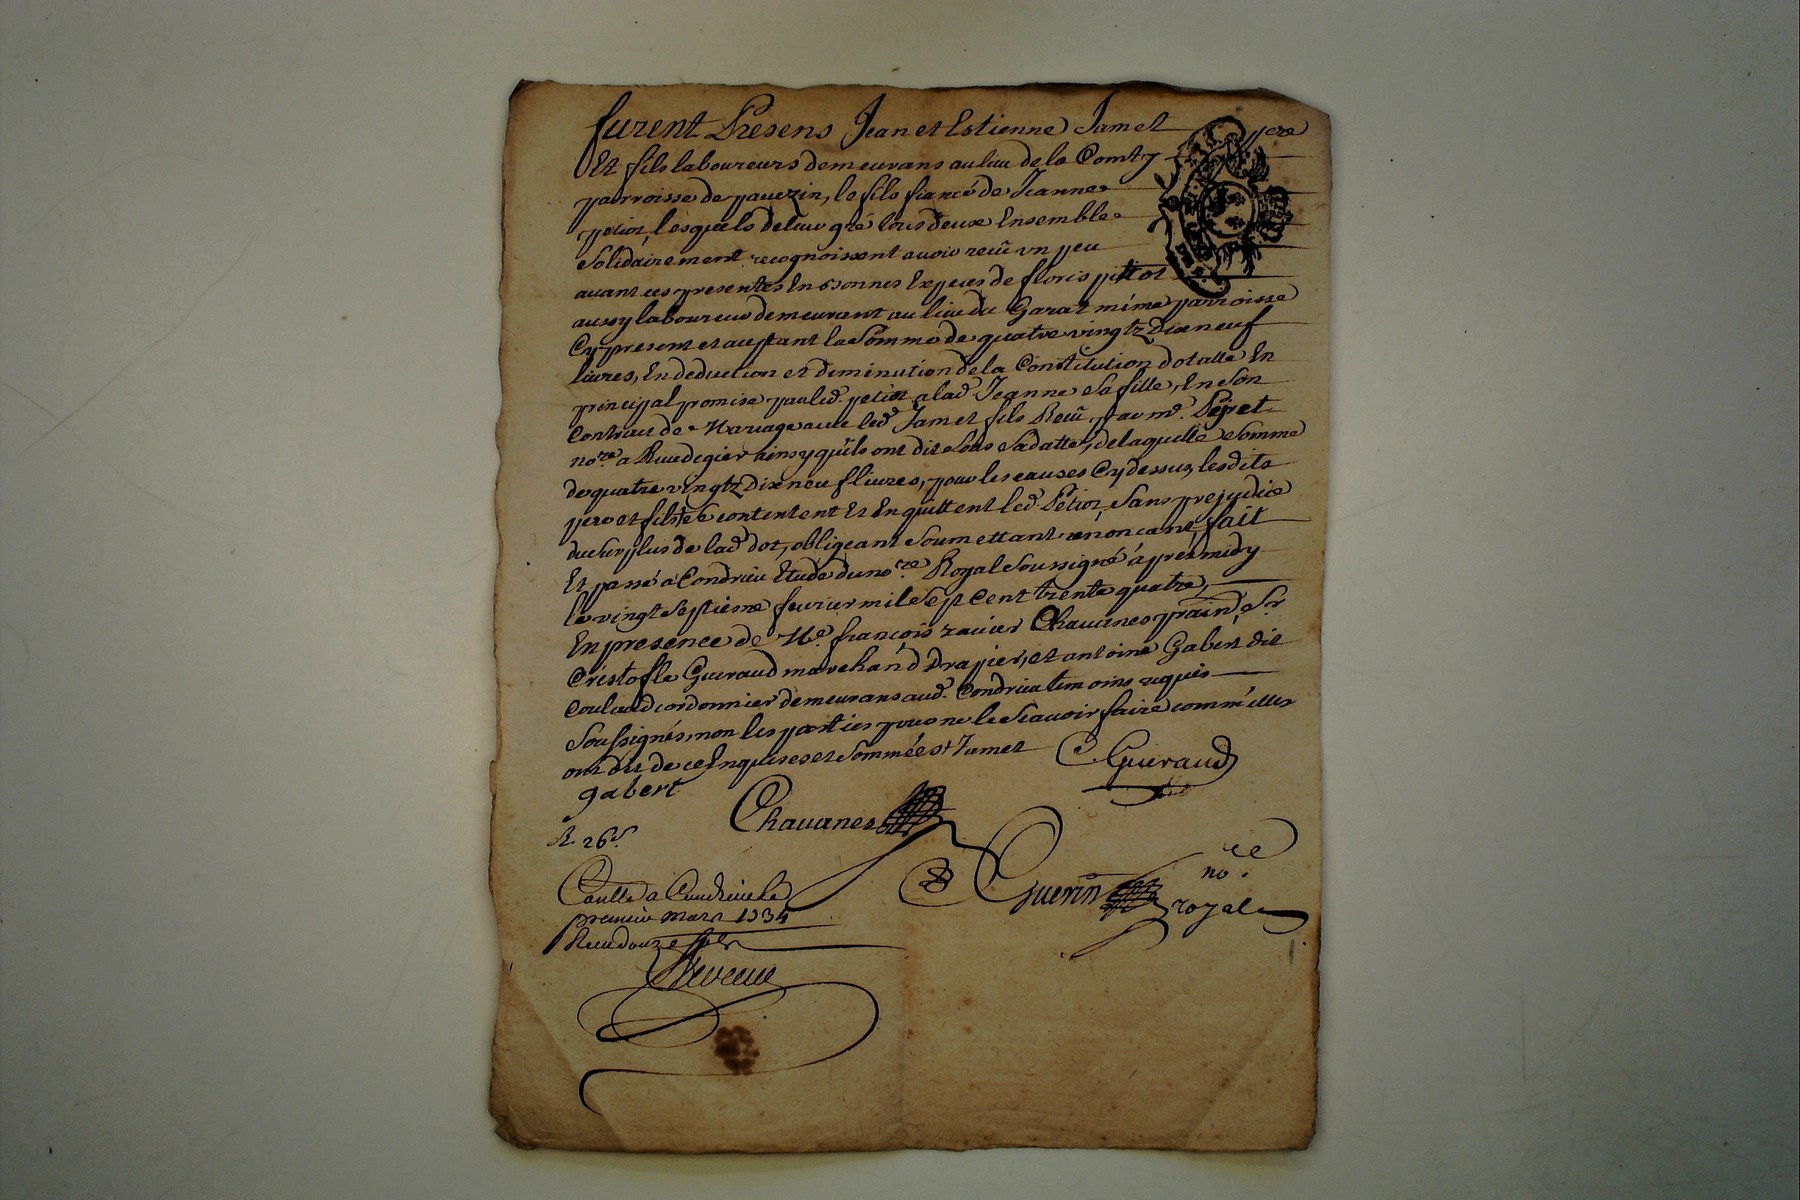 furent Presens Jean et Estienne Jamet pere
Et fils laboureurs demeurans au lieu de la Comty
parroisse de pavezin, le fils fiancé de Jeanne
petiot, lesquels de leur gré tous deux Ensemble
solidairement recognoissent avoir reçû un peu
avant ces presentes En bonnes Especes de floris petiot
aussy laboureur demeurant au lieu du Garat même parroisse
Cy present et acceptant la Somme de quatre vingtz Dixneuf
livres, En deduction et diminution de la Constitution dotalle En
principal promise par led. petiot a lad. Jeanne Sa fille, En Son
Contract de Mariage avec led. Jamet fils Reçû par me.
nore. a Rivedegier ainsy quils ont dit Sous Sa datte, de laquelle Somme
de quatre vingtz Dix neuf livres, pour les causes Cy dessus, lesdits
pere et fils Se contentent Et En quittent led. Petiot, Sans prejudice
du Surplus de lad. dot, obligeant Soumettant rénonceant, fait
Et passé a Condrieu Etude du nore. Royal Soussigné áprés midy
le vingt Septiéme fevrier mil Sept Cent trente quatre,
En presence de Me. françois xavier Chavanes, Sr
Cristofle Gueraud marchand Drapier, et antoine Gabert dit
Coulaud cordonnier demeurans aud. Condrieu temoins requis
Soussignés, non les parties pour ne le Sçavoir faire comm'elles
ont dit de ce Enquises et Sommées Jamet
C Gueraud
gabert
Chavanes
R. 26s.
Guerin nore royal
Conllé a Condrieu le
premier mars 1734
Reçu douze sols